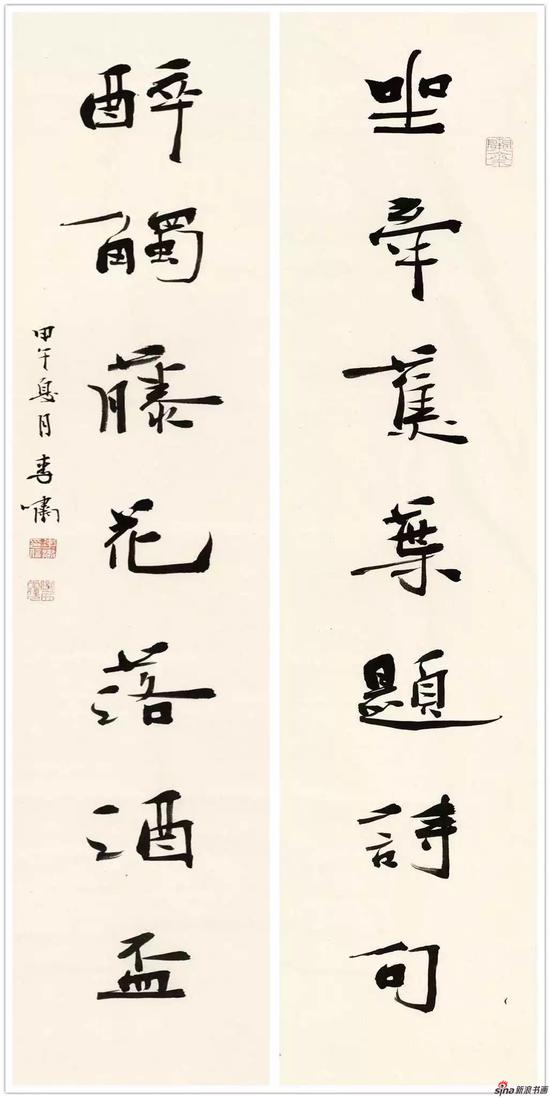 坐牽蕉葉題詩句
醉觸藤花落酒盃
甲午月李嘯
sina新浪书画